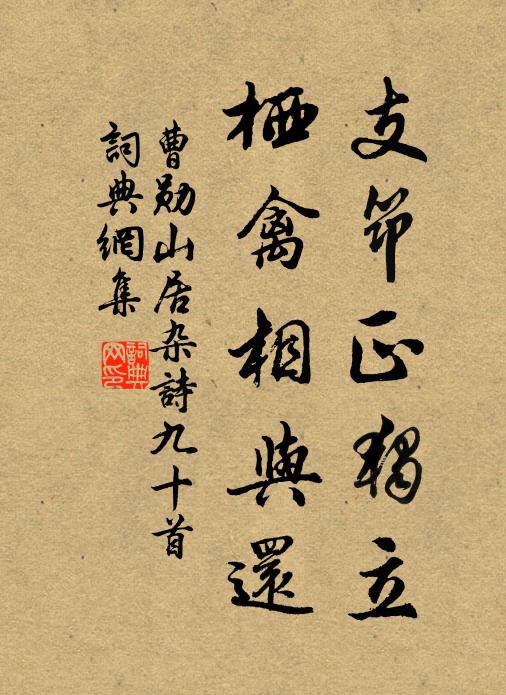 支筇正獨立
栖禽相與還
曹勛山居杂詩九十首
詞典網集
詞典
网印